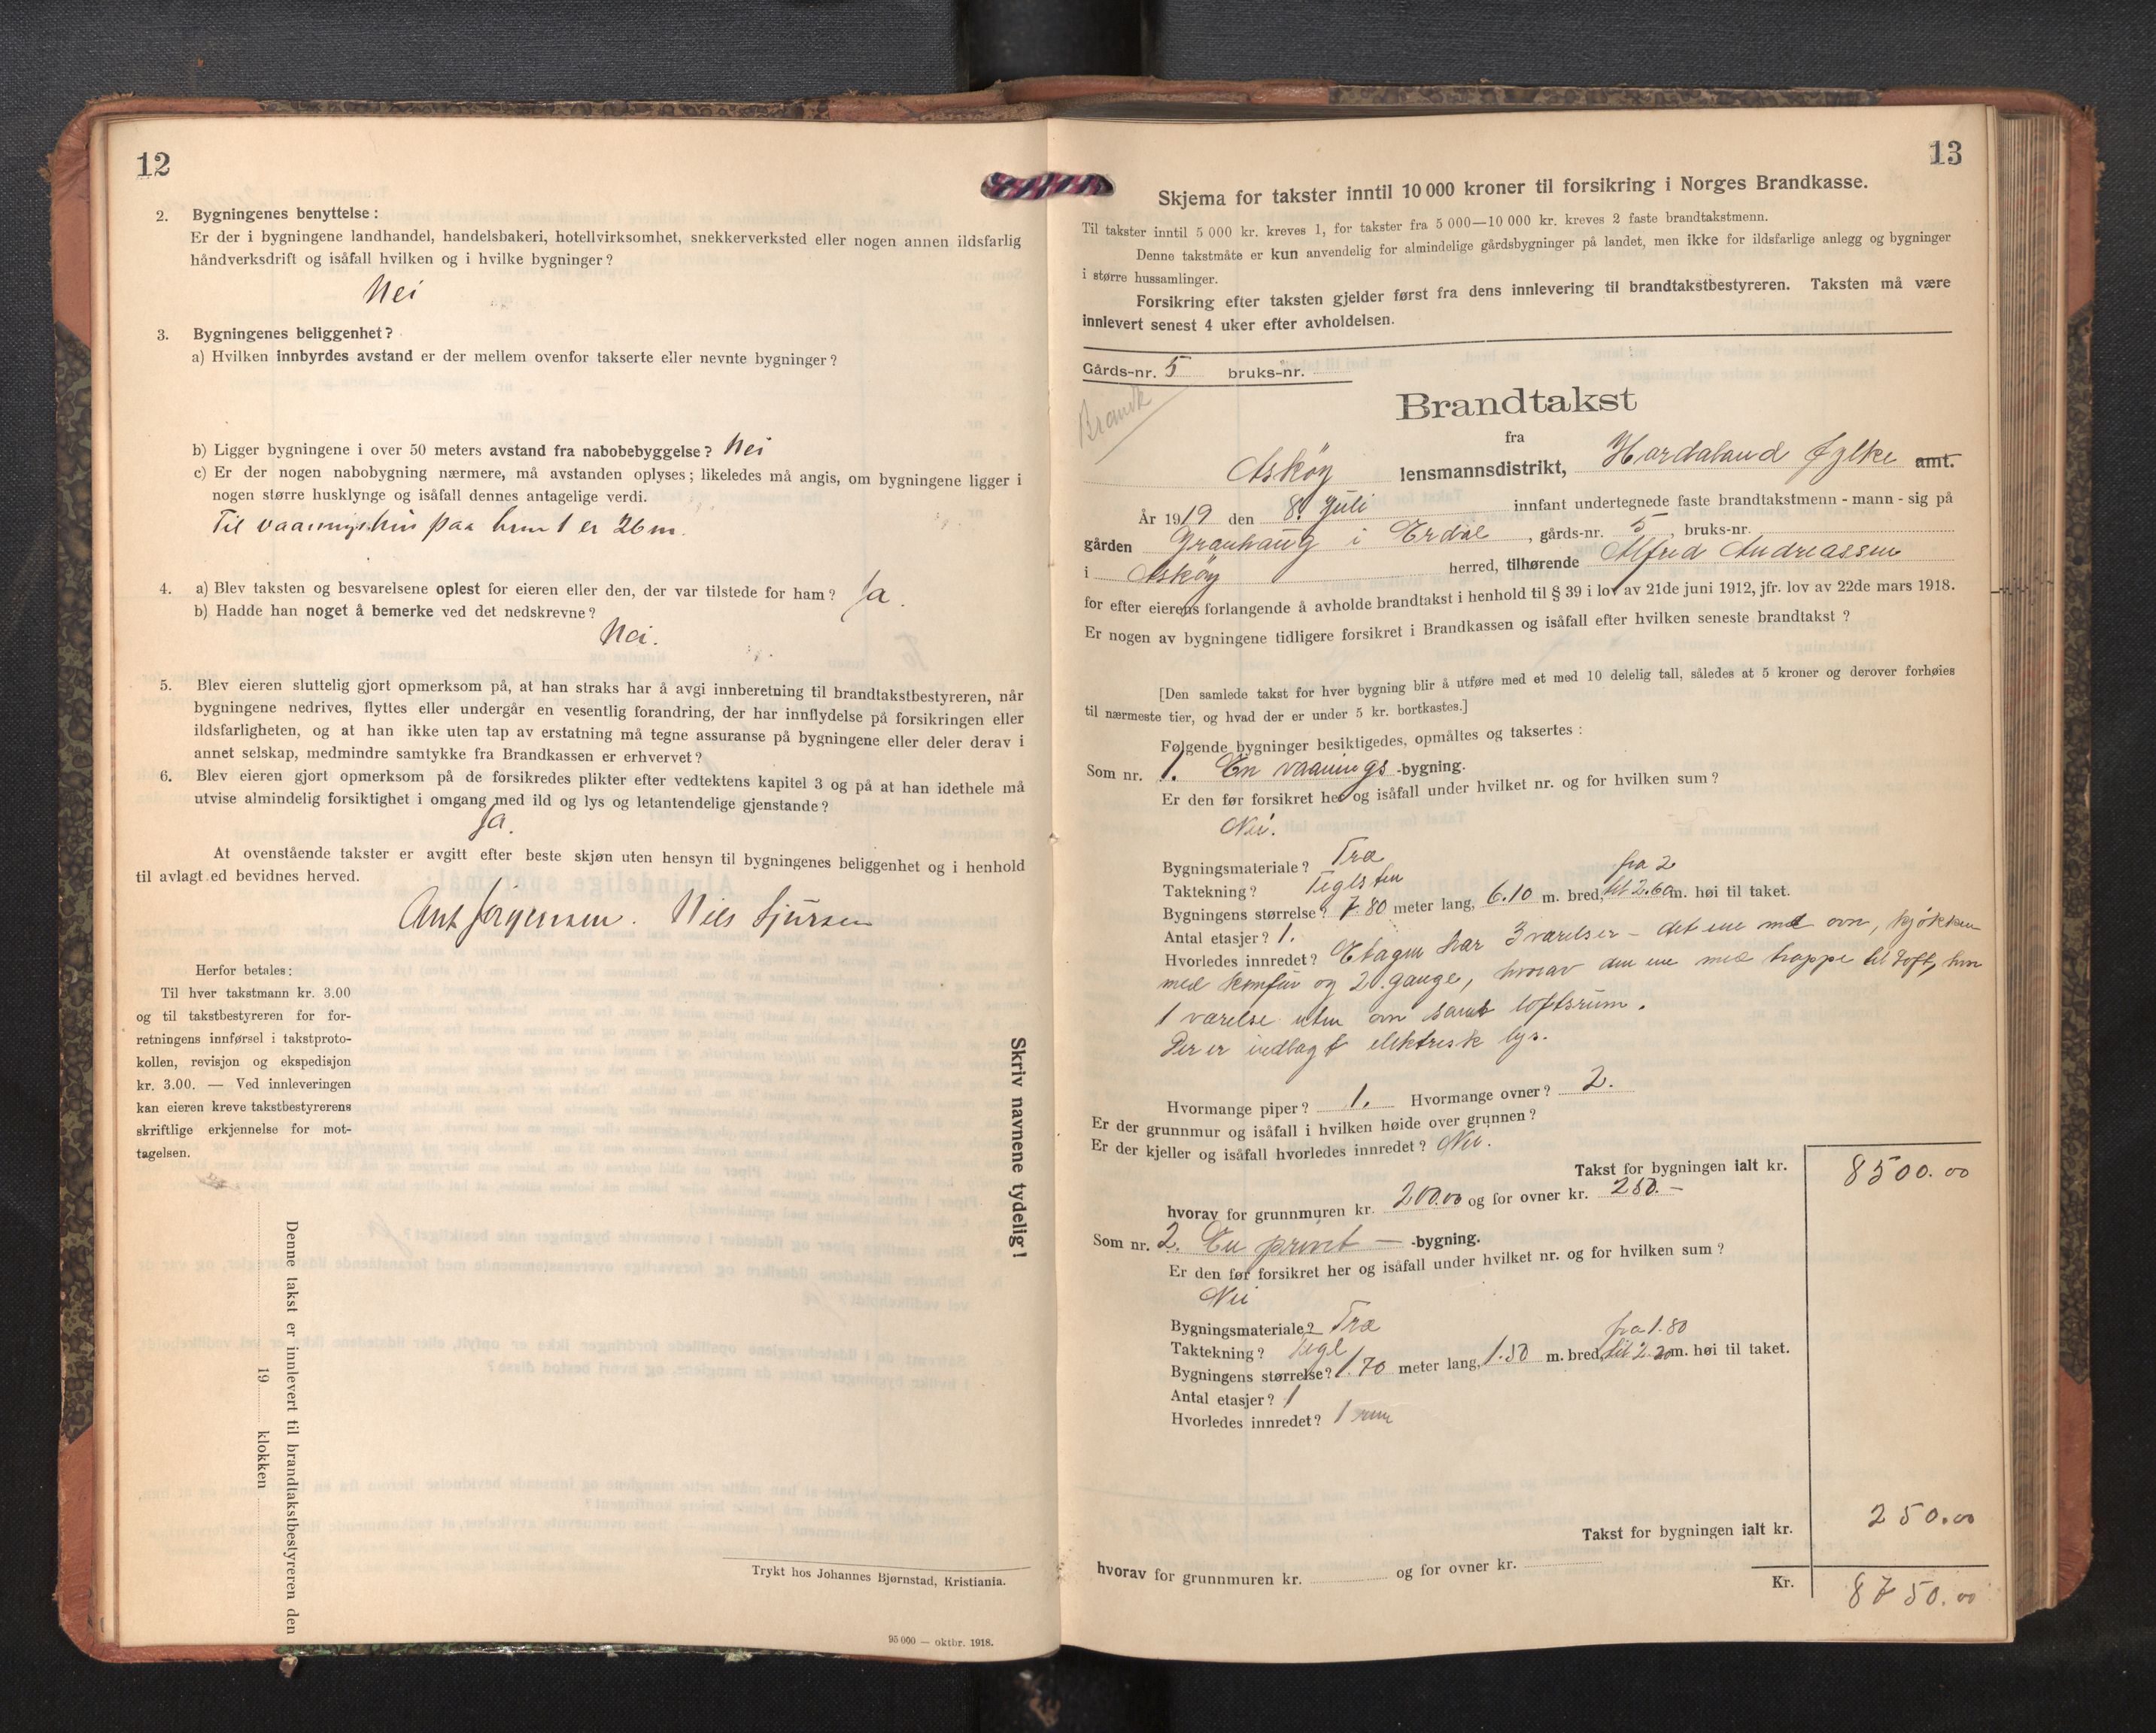 12
2. Bygningenes benyttelse:
Er der i bygningene landhandel, handelsbakeri, hotellvirksomhet, snekkerverksted eller nogen annen ildsfarlig
håndverksdrift og isåfall hvilken og i hvilke bygninger?
Nei
3. Bygningenes beliggenhet?
a) Hvilken innbyrdes avstand er der mellem ovenfor takserte eller nevnte bygninger?
b) Ligger bygningene i over 50 meters avstand fra nabobebyggelse? Nei
c) Er der nogen nabobygning nærmere, må avstanden oplyses; likeledes må angis, om bygningene ligger i
nogen større husklynge og isåfall dennes antagelige verdi.
Til vaaningshus paa brun 1 er 26 m.
4. a) Blev taksten og besvarelsene oplest for eieren eller den, der var tilstede for ham? Ja.
b) Hadde han noget å bemerke ved det nedskrevne?
Nei.
5. Blev eieren sluttelig gjort opmerksom på, at han straks har å avgi innberetning til brandtakstbestyreren, når
bygningene nedrives, flyttes eller undergår en vesentlig forandring, der har innflydelse på forsikringen eller
ildsfarligheten, og at han ikke uten tap av erstatning må tegne assuranse på bygningene eller deler derav i
annet selskap, medmindre samtykke fra Brandkassen er erhvervet?
6. Blev eieren gjort opmerksom på de forsikredes plikter efter vedtektens kapitel 3 og på at han idethele må
utvise almindelig forsiktighet i omgang med ild og lys og letantendelige gjenstande?
Ja.
At ovenstående takster er avgitt efter beste skjøn uten hensyn til bygningenes beliggenhet og i henhold
til avlagt ed bevidnes herved.
Ant Jørgensen. Nils Sjursen
Herfor betales:
Til hver takstmann kr. 3.00
og til takstbestyreren for for-
retningens innførsel i takstproto-
kollen, revisjon og ekspedisjon
kr. 3.00. — Ved innleveringen
kan eieren kreve takstbestyrerens
skriftlige erkjennelse for mot-
tagelsen.
Skriv navnene tydelig!
Denne takst er innlevert til brandtakstbestyreren den
19 klokken
Trykt hos Johannes Bjørnstad, Kristiania.
95 000 — oktbr. 1918.
13
Skjema for takster inntil 10 000 kroner til forsikring i Norges Brandkasse.
Til takster inntil 5 000 kr. kreves 1, for takster fra 5 000—10 000 kr. kreves 2 faste brandtakstmenn.
Denne takstmåte er kun anvendelig for almindelige gårdsbygninger på landet, men ikke for ildsfarlige anlegg og bygninger
i større hussamlinger.
Forsikring efter taksten gjelder først fra dens innlevering til brandtakstbestyreren. Taksten må være
innlevert senest 4 uker efter avholdelsen.
Gårds-nr. 5 bruks-nr.
Brandtakst
fra
Askøy lensmannsdistrikt, Hordaland fylke amt.
År 1919 den 8. Juli innfant undertegnede faste brandtakstmenn - mann - sig på
gården Granhaug i Erdal, gårds-nr. 5, bruks-nr.
i Askøy herred, tilhørende Alfred Andreassen
for efter eierens forlangende å avholde brandtakst i henhold til § 39 i lov av 21de juni 1912, jfr. lov av 22de mars 1918.
Er nogen av bygningene tidligere forsikret i Brandkassen og isåfall efter hvilken seneste brandtakst?
[Den samlede takst for hver bygning blir å utføre med et med 10 delelig tall, således at 5 kroner og derover forhøies
til nærmeste tier, og hvad der er under 5 kr. bortkastes.]
Følgende bygninger besiktigedes, opmåltes og taksertes:
Som nr. 1. En vaanings -bygning.
Er den før forsikret her og isåfall under hvilket nr. og for hvilken sum?
Nei.
Bygningsmateriale? Træ
Taktekning? Teglsten
Bygningens størrelse? 7.80 meter lang, 6.10 m. bred, fra 2 til 2.60 m. høi til taket.
Antal etasjer? 1.
Hvorledes innredet? Etagen har 3 værelser – det ene med ovn, kjøkken
med komfur og 2 gange, hvorav den ene med trappe til Loft, hvor
1 værelse uten ovn samt loftsrum.
Der er indlagt elektrisk lys.
Hvormange piper? 1. Hvormange ovner? 2.
Er der grunnmur og isåfall i hvilken høide over grunnen?
Er der kjeller og isåfall hvorledes innredet? Nei.
Takst for bygningen ialt kr. 8500.00
hvorav for grunnmuren kr. 200.00 og for ovner kr. 250.–
Som nr. 2. En privet — -bygning.
Er den før forsikret her og isåfall under hvilket nr. og for hvilken sum?
Nei
Bygningsmateriale? Træ
Taktekning? Tegl
Bygningens størrelse? 1.70 meter lang, 1.50 m. bred, fra 1.80 til 2.20 m. høi til taket.
Antal etasjer? 1
Hvorledes innredet? 1 rum
Takst for bygningen ialt kr. 250.00
hvorav for grunnmuren kr. og for ovner kr.
Kr. 8750.00